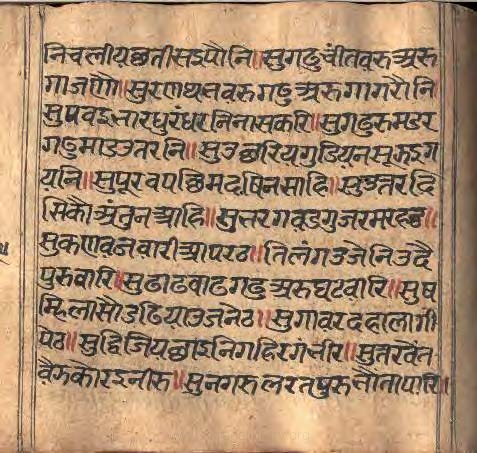 निचलीयछतीसइपौनि॥सुगढुचींतवरुअरु
गाजणौ॥सुरणथलवरुगढुअरुगागरौनि
सुपवइलारधुरंधरनिनासकरि॥सुगढुरुमडर
गढुमाडउतरनि॥सुउछरियगुडियनसूरुडग
यनि॥सुपूरवपछिमदषिनसाहि॥सुउतरदि
सिकौअंतुनआहि॥सुत्तरगवडगुजरमरहठ॥
सुकणवजवारीआपरठ॥तिलंगउजेनिउदै
पुरुवारि॥सुढाढवाढगढुअरुघटवारि॥सुष
म्हिलासौउढियाउजनेठ॥सुगावरददालागी
पेठ॥सुद्विजियछाइनिगहिरगंभीर॥सुतरवेत
वैरुकोरइनीरु॥सुनगरुलरतपुरुलौतापारि॥